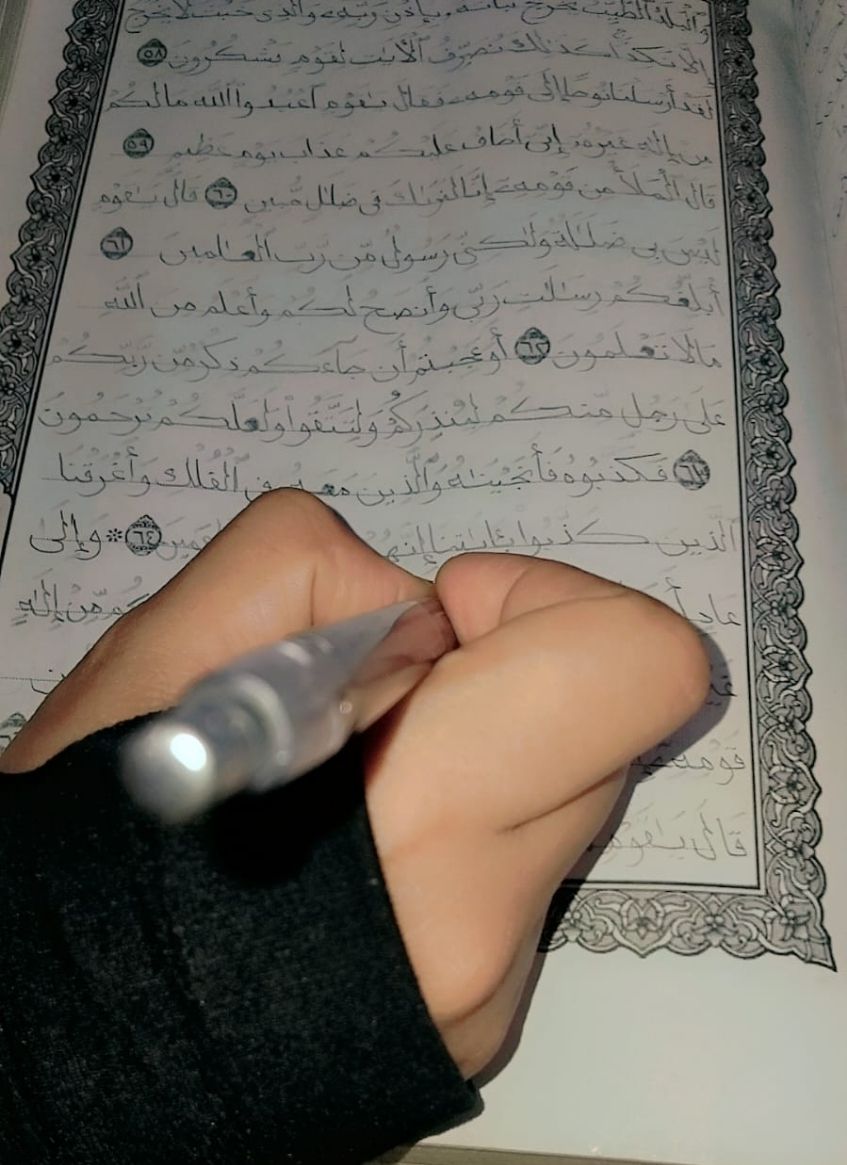 وَٱلۡبَلَدُ ٱلطَّيِّبُ يَخۡرُجُ نَبَاتُهُۥ بِإِذۡنِ رَبِّهِۦ وَٱلَّذِي خَبُثَ لَا يَخۡرُجُ
إِلَّا نَكِدًا كَذَٰلِكَ نُصَرِّفُ ٱلۡأٓيَٰتِ لِقَوۡمٖ يَشۡكُرُونَ ٥٨
لَقَدۡ أَرۡسَلۡنَا نُوحًا إِلَىٰ قَوۡمِهِۦ فَقَالَ يَٰقَوۡمِ ٱعۡبُدُوا۟ ٱللَّهَ مَا لَكُم
مِّنۡ إِلَٰهٍ غَيۡرُهُۥٓ إِنِّيٓ أَخَافُ عَلَيۡكُمۡ عَذَابَ يَوۡمٍ عَظِيمٖ ٥٩
قَالَ ٱلۡمَلَأُ مِن قَوۡمِهِۦٓ إِنَّا لَنَرَىٰكَ فِي ضَلَٰلٖ مُّبِينٖ ٦٠ قَالَ يَٰقَوۡمِ
لَيۡسَ بِي ضَلَٰلَةٞ وَلَٰكِنِّي رَسُولٞ مِّن رَّبِّ ٱلۡعَٰلَمِينَ ٦١
أُبَلِّغُكُمۡ رِسَٰلَٰتِ رَبِّي وَأَنصَحُ لَكُمۡ وَأَعۡلَمُ مِنَ ٱللَّهِ
مَا لَا تَعۡلَمُونَ ٦٢ أَوَعَجِبۡتُمۡ أَن جَآءَكُمۡ ذِكۡرٞ مِّن رَّبِّكُمۡ
عَلَىٰ رَجُلٖ مِّنكُمۡ لِيُنذِرَكُمۡ وَلِتَتَّقُوا۟ وَلَعَلَّكُمۡ تُرۡحَمُونَ
٦٣ فَكَذَّبُوهُ فَأَنجَيۡنَٰهُ وَٱلَّذِينَ مَعَهُۥ فِي ٱلۡفُلۡكِ وَأَغۡرَقۡنَا
ٱلَّذِينَ كَذَّبُوا۟ بِـَٔايَٰتِنَآ إِنَّهُمۡ عَمِينَ ٦٤ * وَإِلَىٰ
عَادٍ مِّنۡ إِلَٰهٍ
قَوۡمِهِۦٓ
قَالَ يَٰقَوۡمِ